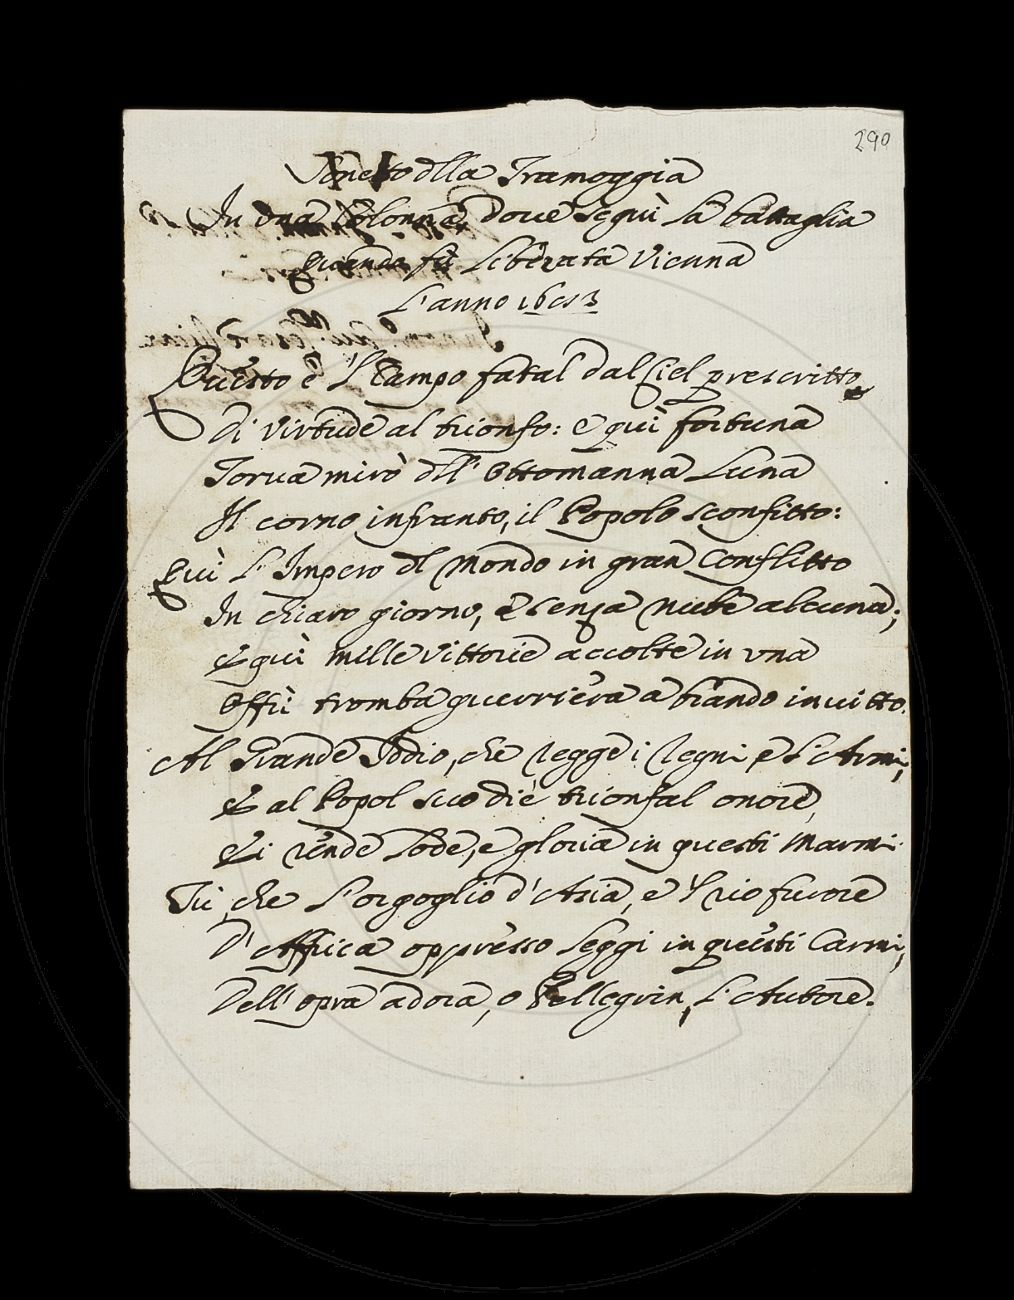 290
Sonetto dlla Tramoggia
In una Colonna dove seguì la battaglia
quando fù liberata Vienna
L'anno 1683
Questo è 'l Campo fatal dal Ciel prescritto
Di virtude al trionfo: e quì fortuna
Torva mirò dll' Ottomanna Luna
Il corno infranto, il Popolo sconfitto:
Quì l'Impero dl Mondo in gran Conflitto
In chiaro giorno, e senza nube alcuna;
E quì mille Vittorie accolte in vna
Offrì tromba guerriera a brando invitto.
Al Grande Iddio, che regge i Regni e l'Armi,
E al Popol suo diè trionfal onore,
Si rende lode, e gloria in questi Marmi.
Tù, che l'orgoglio d'Asia, e 'l rio furore
D'Affrica oppresso leggi in questi Carmi,
Dell'opra adora, o Pellegrin, l'Autore.